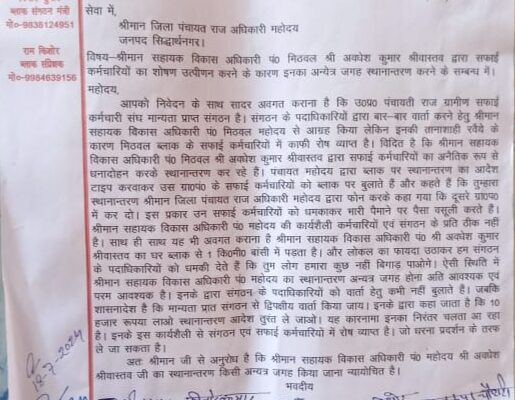 ब्लाक संगठन मंत्री
मो०-9838124951
राम किशोर
ब्लाक संप्रेक्षक
मो०-9984639156
सेवा में,
श्रीमान जिला पंचायत राज अधिकारी महोदय
जनपद सिद्धार्थनगर।
विषय–श्रीमान सहायक विकास अधिकारी पं० मिठवल श्री अवधेश कुमार श्रीवास्तव द्वारा सफाई
कर्मचारियों का शोषण उत्पीणन करने के कारण इनका अन्यत्रे जगह स्थानान्तरण करने के सम्बन्ध में।
महोदय,
आपको निवेदन के साथ सादर अवगत कराना है कि उ०प्र० पंचायती राज ग्रामीण सफाई
कर्मचारी संघ मान्यता प्राप्त संगठन है। संगठन के पदाधिकारियों द्वारा बार–बार वार्ता करने हेतु श्रीमान
सहायक विकास अधिकारी पं० मिठवल महोदय से आग्रह किया लेकिन इनकी तानाशाही रवैये के
कारण मिठवल ब्लाक के सफाई कर्मचारियों में काफी रोष व्याप्त है। विदित है कि श्रीमान सहायक
विकास अधिकारी पं० मिठवल श्री अवधेश कुमार श्रीवास्तव द्वारा सफाई कर्मचारियों का अनैतिक रूप से
धनादोहन करके स्थानान्तरण कर रहे हैं। पंचायत महोदय द्वारा ब्लाक पर स्थानान्तरण का आदेश
टाइप करवाकर उस ग्रा०पं० के सफाई कर्मचारियों को ब्लाक पर बुलाते हैं और कहते हैं कि तुम्हारा
स्थानान्तरण श्रीमान जिला पंचायत राज अधिकारी महोदय द्वारा फोन करके कहा गया कि दूसरे ग्रा०पं०
में कर दो। इस प्रकार उन सफाई कर्मचारियों को धमकाकर भारी पैमाने पर पैसा वसूली करते हैं।
श्रीमान सहायक विकास अधिकारी पं० महोदय की कार्यशैली कर्मचारियों एवं संगठन के प्रति ठीक नहीं
है। साथ ही साथ यह भी अवगत कराना है श्रीमान सहायक विकास अधिकारी पं० श्री अवधेश कुमार
श्रीवास्तव का घर ब्लाक से 1 कि०मी० बांसी में पड़ता है। और लोकल का फायदा उठाकर हम संगठन
के पदाधिकारियों को धमकी देते हैं कि तुम लोग हमारा कुछ नहीं बिगाड़ पाओगे। ऐसी स्थिति में
श्रीमान सहायक विकास अधिकारी पं० महोदय का स्थानान्तरण अन्यत्र जगह होना अति आवश्यक एवं
परम आवश्यक है। इनके द्वारा संगठन के पदाधिकारियों को वार्ता हेतु कभी नहीं बुलाते है। जबकि
शासनादेश है कि मान्यता प्राप्त संगठन से द्विपक्षीय वार्ता किया जाय। इनके द्वारा कहा जाता है कि 10
हजार रूपया लाओ स्थानान्तरण आदेश तुरत ले जाओ। यह कारनामा इनका निरंतर चलता आ रहा
है। इनके इस कार्यशैली से संगठन एवं सफाई कर्मचारियों में रोष व्याप्त है। जो धरना प्रदर्शन के तरफ
ले जा सकता है।
अतः श्रीमान जी से अनुरोध है कि श्रीमान सहायक विकास अधिकारी पं० महोदय श्री अवधेश
श्रीवास्तव जी का स्थानान्तरण किसी अन्यत्र जगह किया जाना न्यायोचित है।
भवदीय
18-7-2024